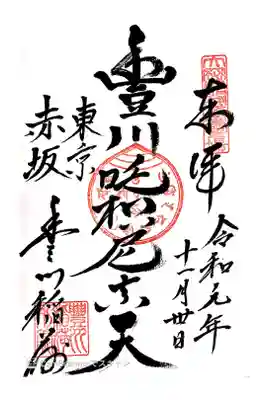 奉拝
令和元年
十一月卅日
豐川吒枳尼真天
東京
赤坂
豊川稲荷